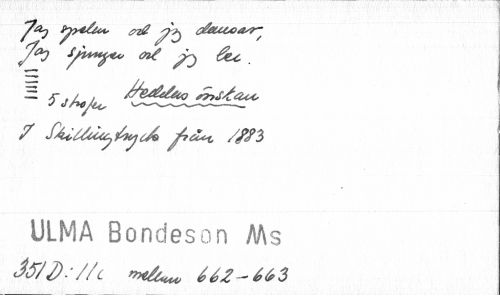 Jag spelar och jag dansar,
Jag sjunger och jag ler.
5 strofer Heddas önskan
I Skillingtryck från 1883
ULMA Bondeson Ms
351 D: 11c mellan 662-663